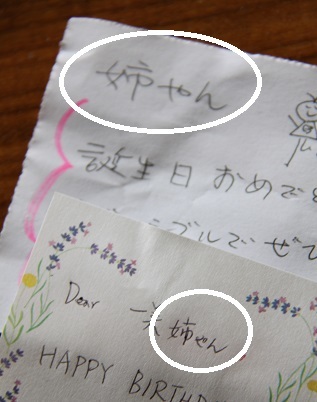 姉やん
誕生日 おめで
ブルでぜひ
Dear 一美姉やん
HAPPY BIRTHD